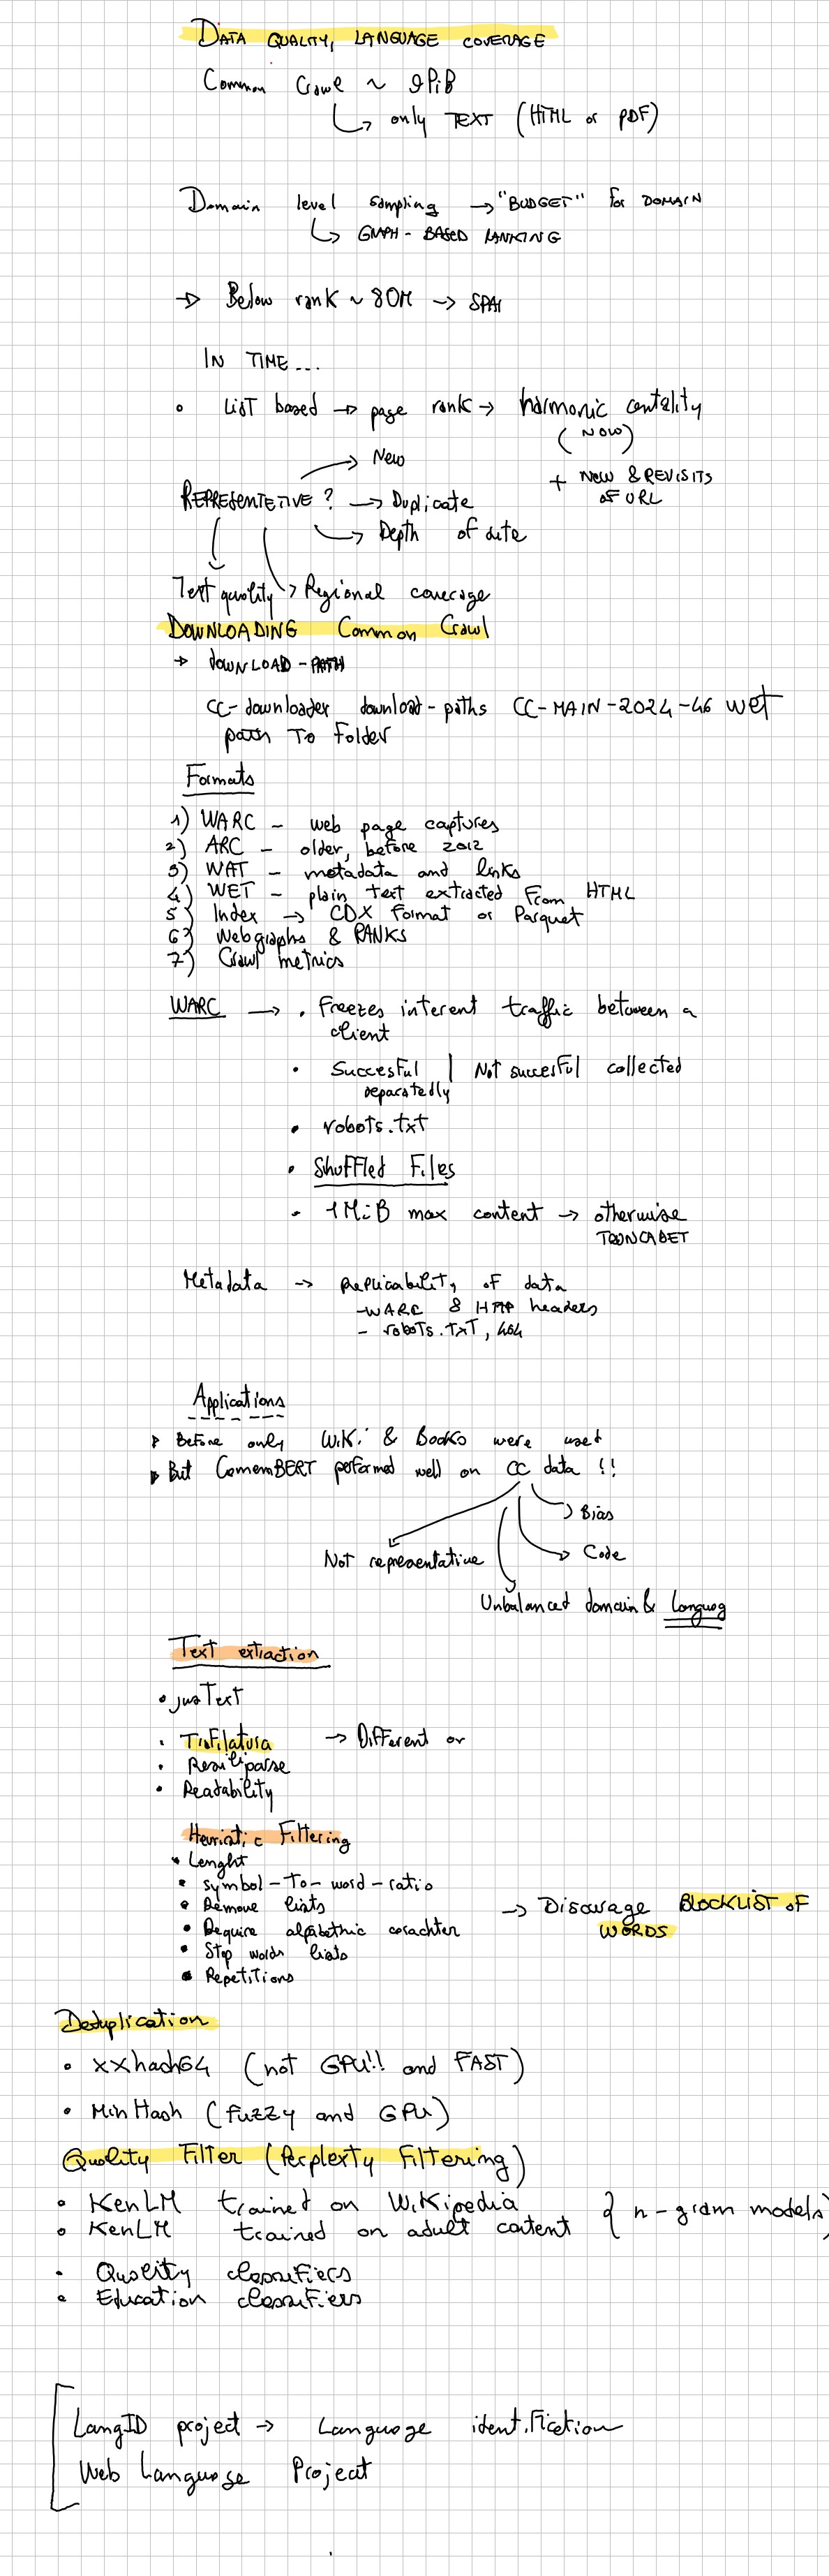 DATA QUALITY, LANGUAGE COVERAGE
Common Crawl ~ 9PiB
↳ only TEXT (HTML or PDF)
Domain level sampling → "BUDGET" for DOMAIN
↳ GRAPH-BASED RANKING
→ Below rank ~ 80M → SPAM
IN TIME...
• LIST based → page rank → harmonic centality
(NOW)
→ New
+ NEW & REVISITS
OF URL
REPRESENTETIVE ? → Duplicate
→ Depth of site
Text quality → Regional coverage
DOWNLOADING Common Crawl
→ DOWNLOAD-PATH
CC-downloader download-paths CC-MAIN-2024-46 wet
path To Folder
Formats
1) WARC - web page captures
2) ARC - older, before 2012
3) WAT - metadata and links
4) WET - plain text extracted From HTML
5) Index → CDX Format or Parquet
6) Webgraphs & RANKS
7) Crawl metrics
WARC → • Freezes interent traffic between a
client
• Succesful | Not succesful collected
separatedly
• robots.txt
• Shuffled Files
• 1MiB max content → otherwise
Metadata → Replicability of data
- WARC & HTTP headers
- roboTs.TxT, 404
Applications
▸ Before only Wiki & Books were used
▸ But CamemBERT performed well on CC data !!
→ Bias
Not representative → Code
Unbalanced domain & Languag
Text extraction
• jusText
• Trafilatura → Different or
• Resiliparse
• Readability
Heuristic Filtering
• Lenght
• symbol-To-word-ratio
• Remove lists → Discurage BLOCKLIST OF
WORDS
• Require alfabethic carachter
• Stop words lists
• Repetitions
Deduplication
• xxhash64 (not GPU!! and FAST)
• MinHash (Fuzzy and GPU)
Quality Filter (Perplexty Filtering)
• KenLM trained on Wikipedia
• KenLM trained on adult content } n-gram models
• Quality classifiers
• Education classifiers
LangID project → Language identification
Web Language Project